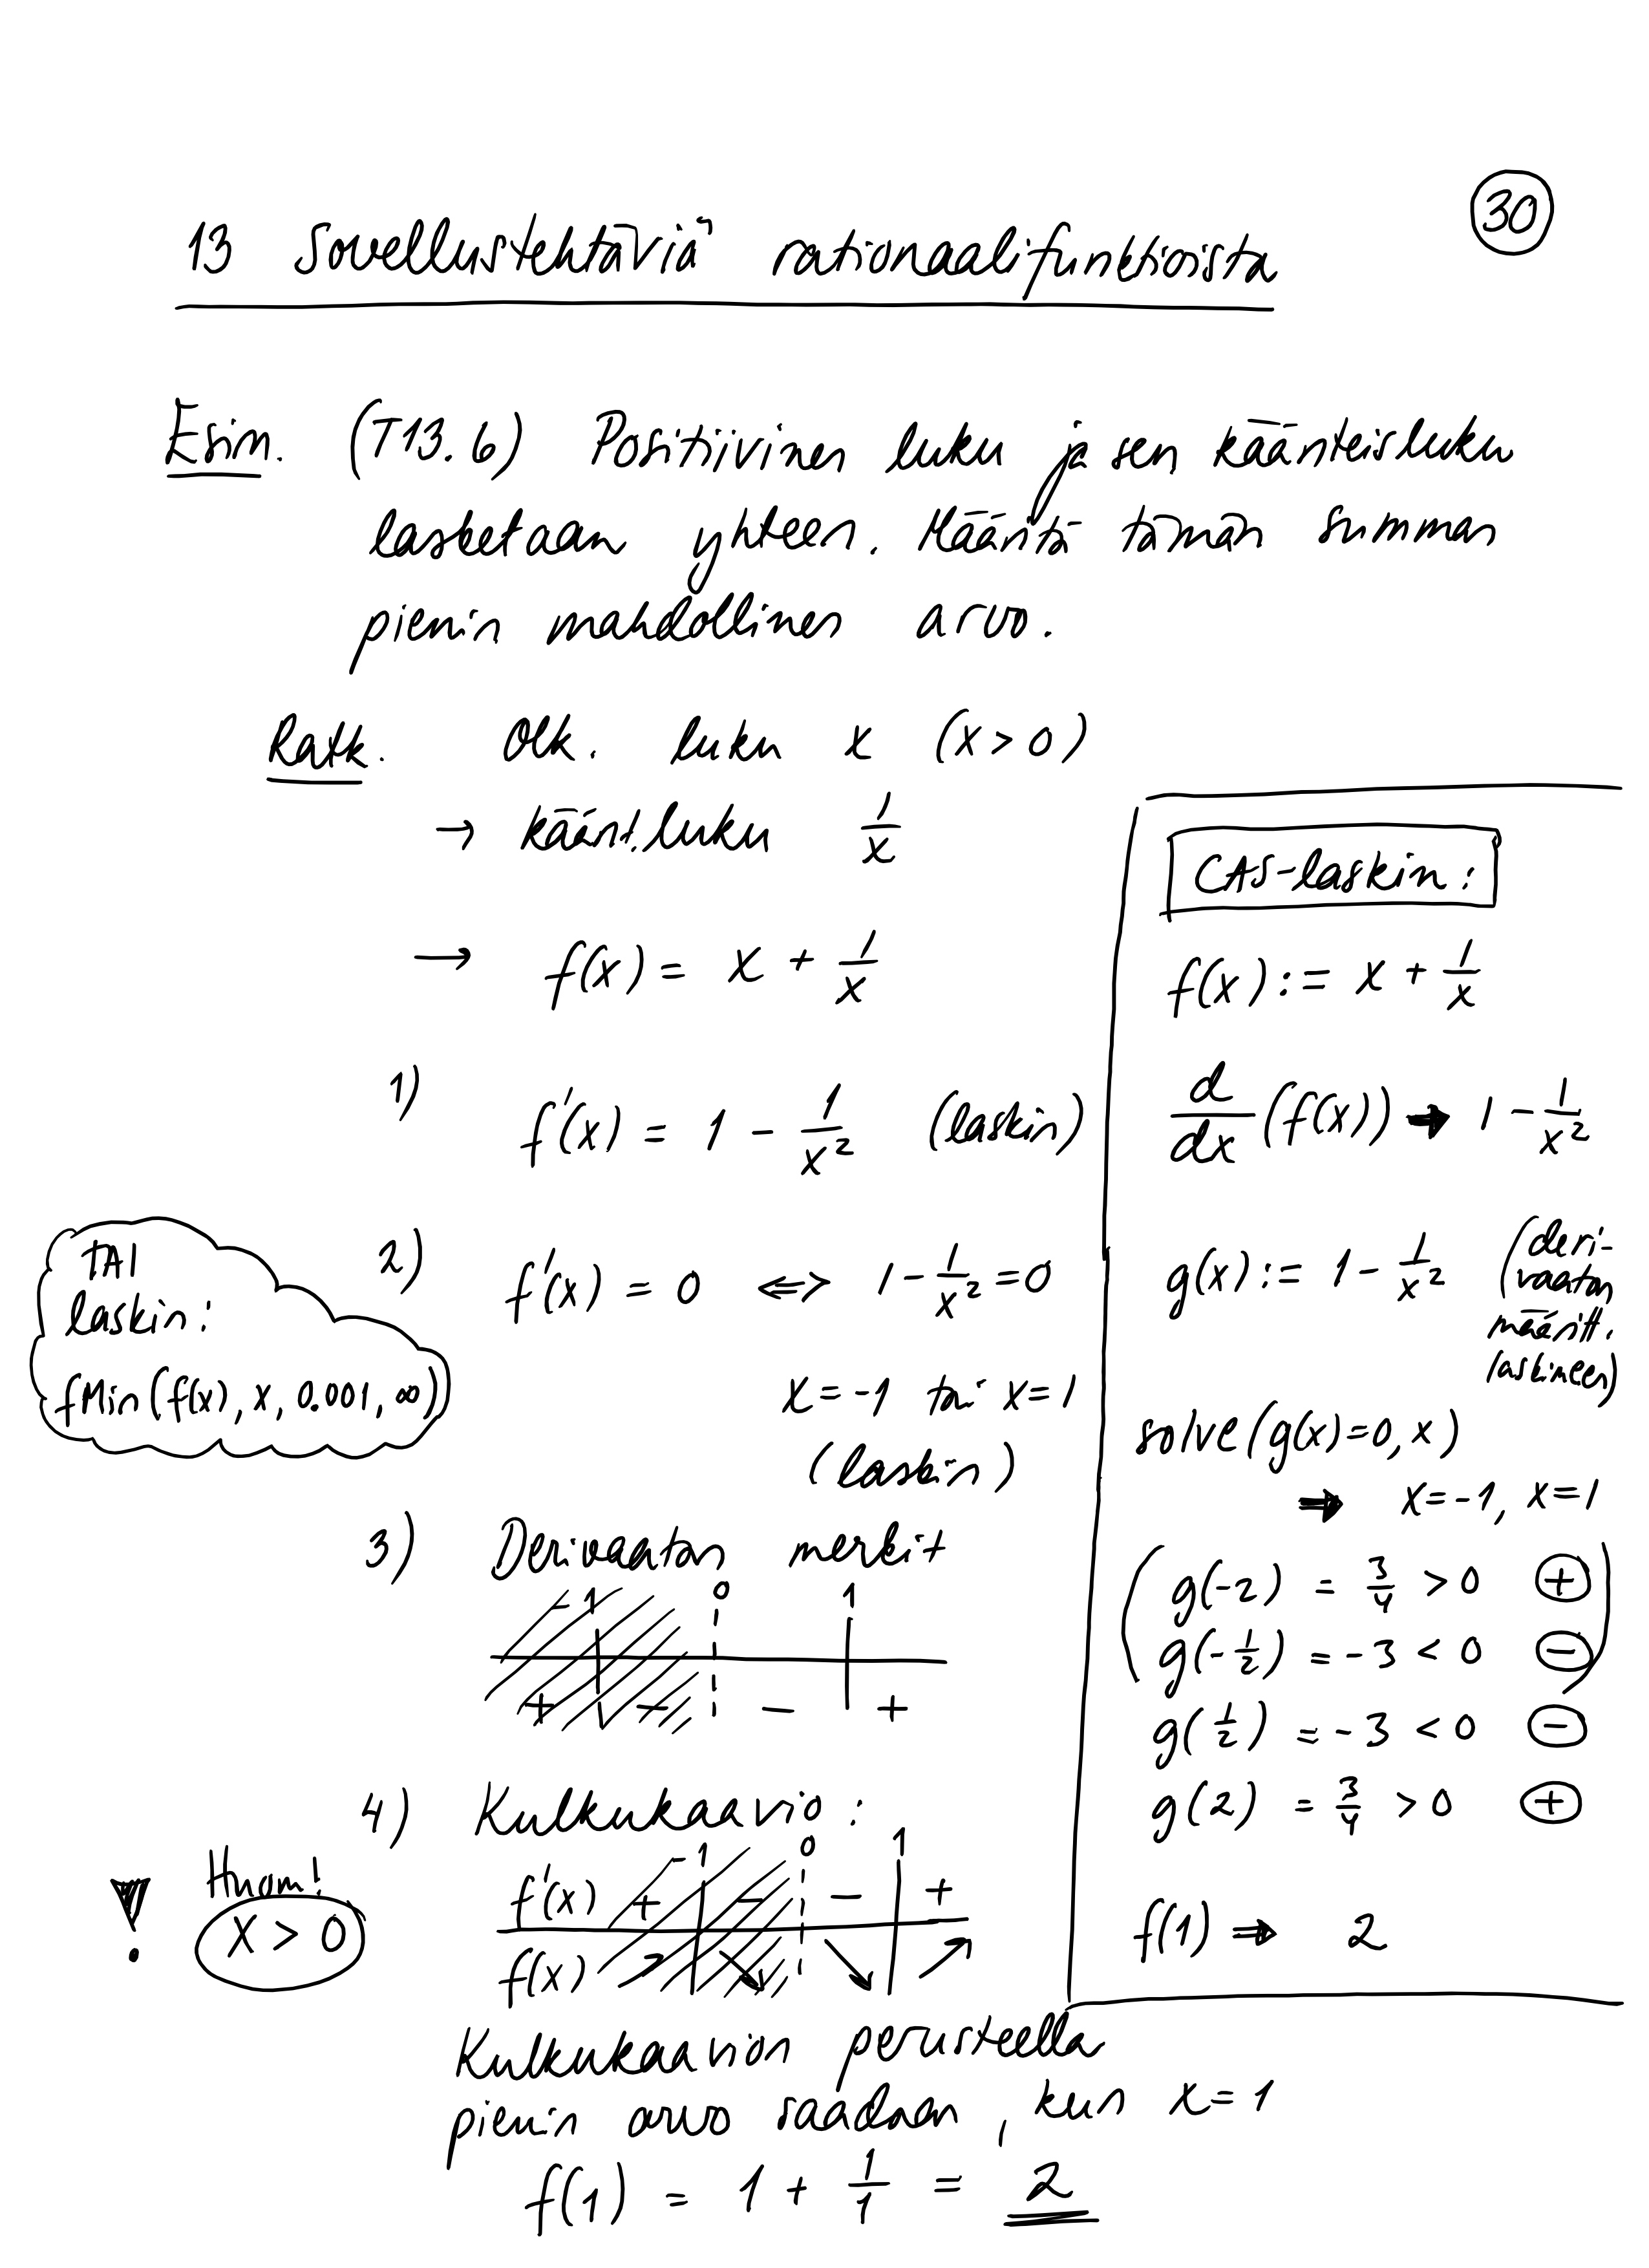 30
13 Sovellustehtäviä rationaalifunktioista
Esim. (T13.6) Positiivinen luku ja sen käänteisluku
lasketaan yhteen. Määritä tämän summan
pienin mahdollinen arvo.
Ratk. Olk. luku x (x > 0)
→ käänt.luku 1/x
→ f(x) = x + 1/x
1) f'(x) = 1 - 1/x² (laskin)
2) f'(x) = 0 ⇔ 1 - 1/x² = 0
x = -1 tai x = 1
(laskin)
TAI
laskin:
fMin(f(x), x, 0.001, ∞)
3) Derivaatan merkit
-1 0 1
+ - - +
4) Kulkukaavio:
-1 0 1
f'(x) + - - +
f(x) ↗ ↘ ↘ ↗
Huom!
! x > 0
Kulkukaavion perusteella
pienin arvo saadaan, kun x = 1
f(1) = 1 + 1/1 = 2
CAS-laskin:
f(x) := x + 1/x
d/dx (f(x)) → 1 - 1/x²
g(x) := 1 - 1/x² (deri-
vaatan
määritt.
laskimeen)
solve(g(x)=0, x)
⇒ x=-1, x=1
(g(-2) = 3/4 > 0 +
g(-1/2) = -3 < 0 -)
g(1/2) = -3 < 0 -
g(2) = 3/4 > 0 +
f(1) ⇒ 2